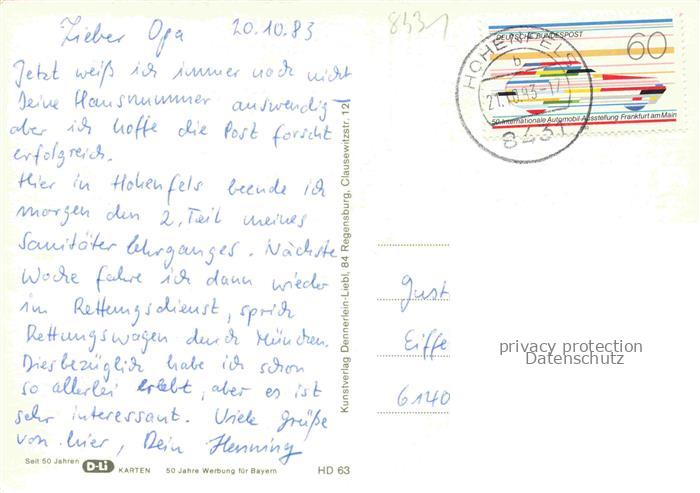 Lieber Opa 20.10.83
Jetzt weiß ich immer noch nicht
Deine Hausnummer auswendig
aber ich hoffe die Post forscht
erfolgreich.
Hier in Hohenfels beende ich
morgen den 2. Teil meines
Sanitäterlehrganges. Nächste
Woche fahre ich dann wieder
im Rettungsdienst, sprich
Rettungswagen durch München.
Diesbezüglich habe ich schon
so allerlei erlebt, aber es ist
sehr interessant. Viele Grüße
von hier, Dein Henning
Seit 50 Jahren D-Li KARTEN 50 Jahre Werbung für Bayern HD 63
Kunstverlag Dennerlein-Liebl, 84 Regensburg, Clausewitzstr. 12
8431
DEUTSCHE BUNDESPOST 60
50. Internationale Automobil-Ausstellung Frankfurt am Main
HOHENFELS
b
21.10.83-17
8431
Gust
Eiffe
6140
privacy protection
Datenschutz